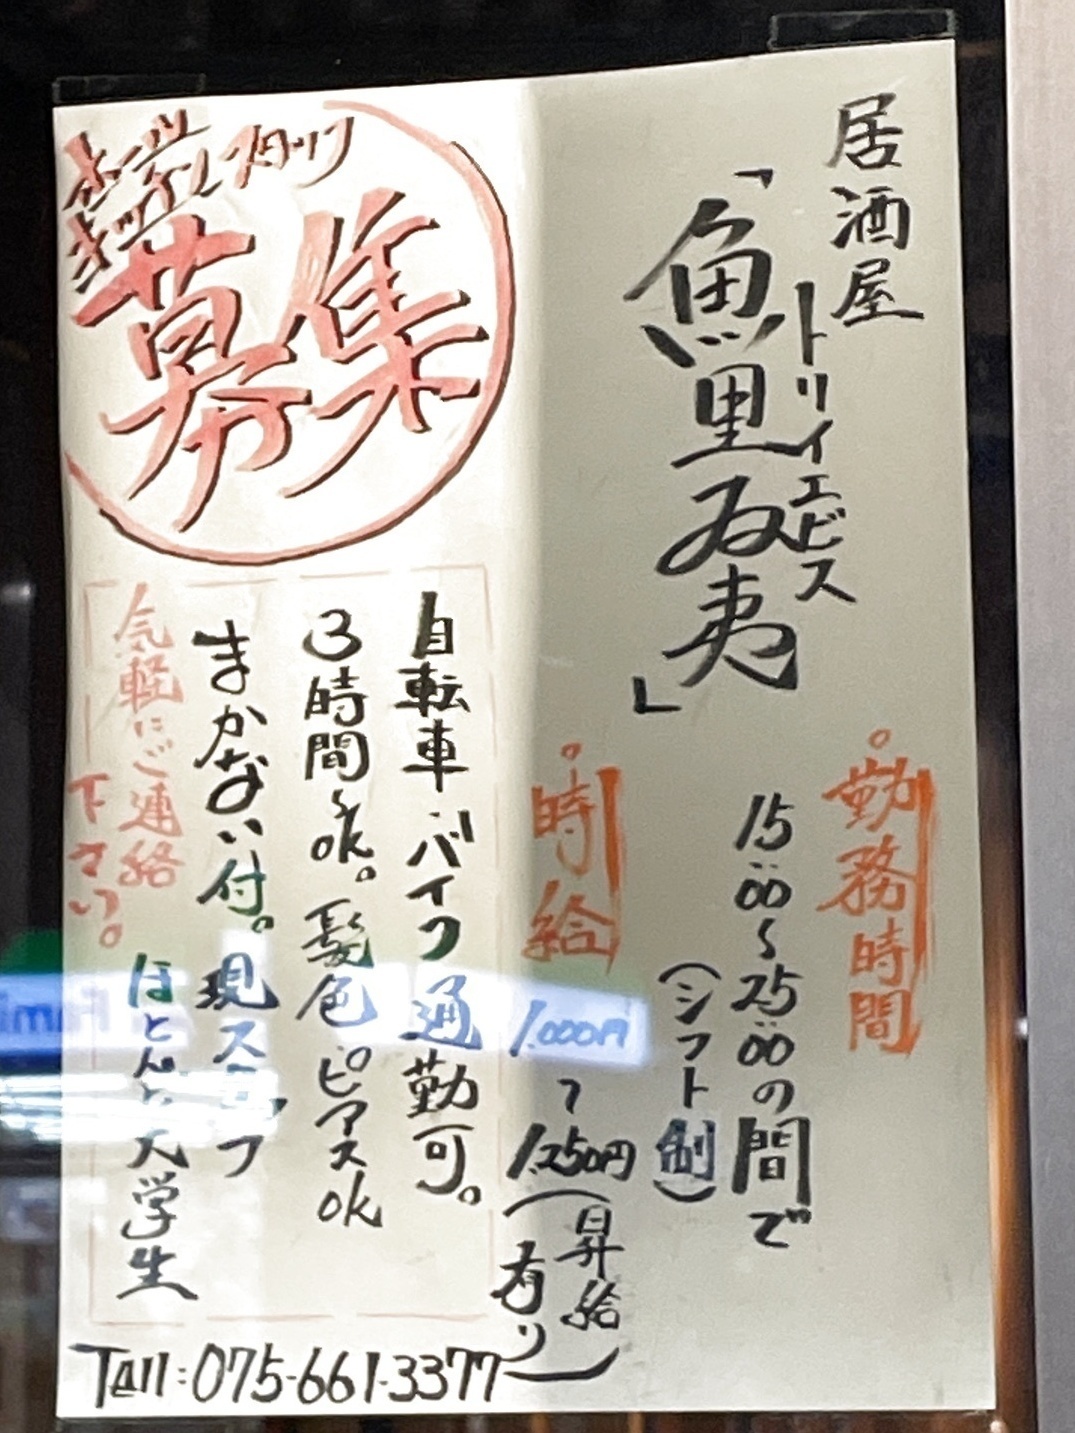 居酒屋
「魚里ゐ夷」
トリイエビス
勤務時間
15:00〜25:00の間で
(シフト制)
時給
1,000円
〜
1,250円
(昇給
有り)
ホール
キッチンスタッフ
募集
自転車・バイク通勤可。
3時間〜ok。髪色ピアスok
まかない付。現スタッフ
ほとんど大学生
気軽にご連絡
下さい。
Tall:075-661-3377
Fami